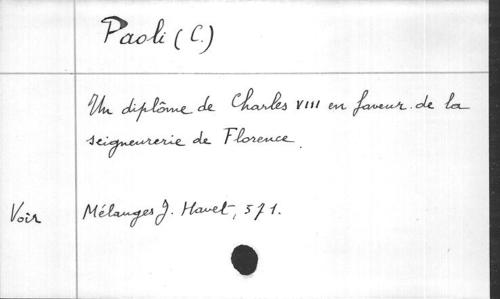 Paoli (C.)
Un diplôme de Charles VIII en faveur de la
seigneurerie de Florence.
Voir Mélanges J. Havet, 571.